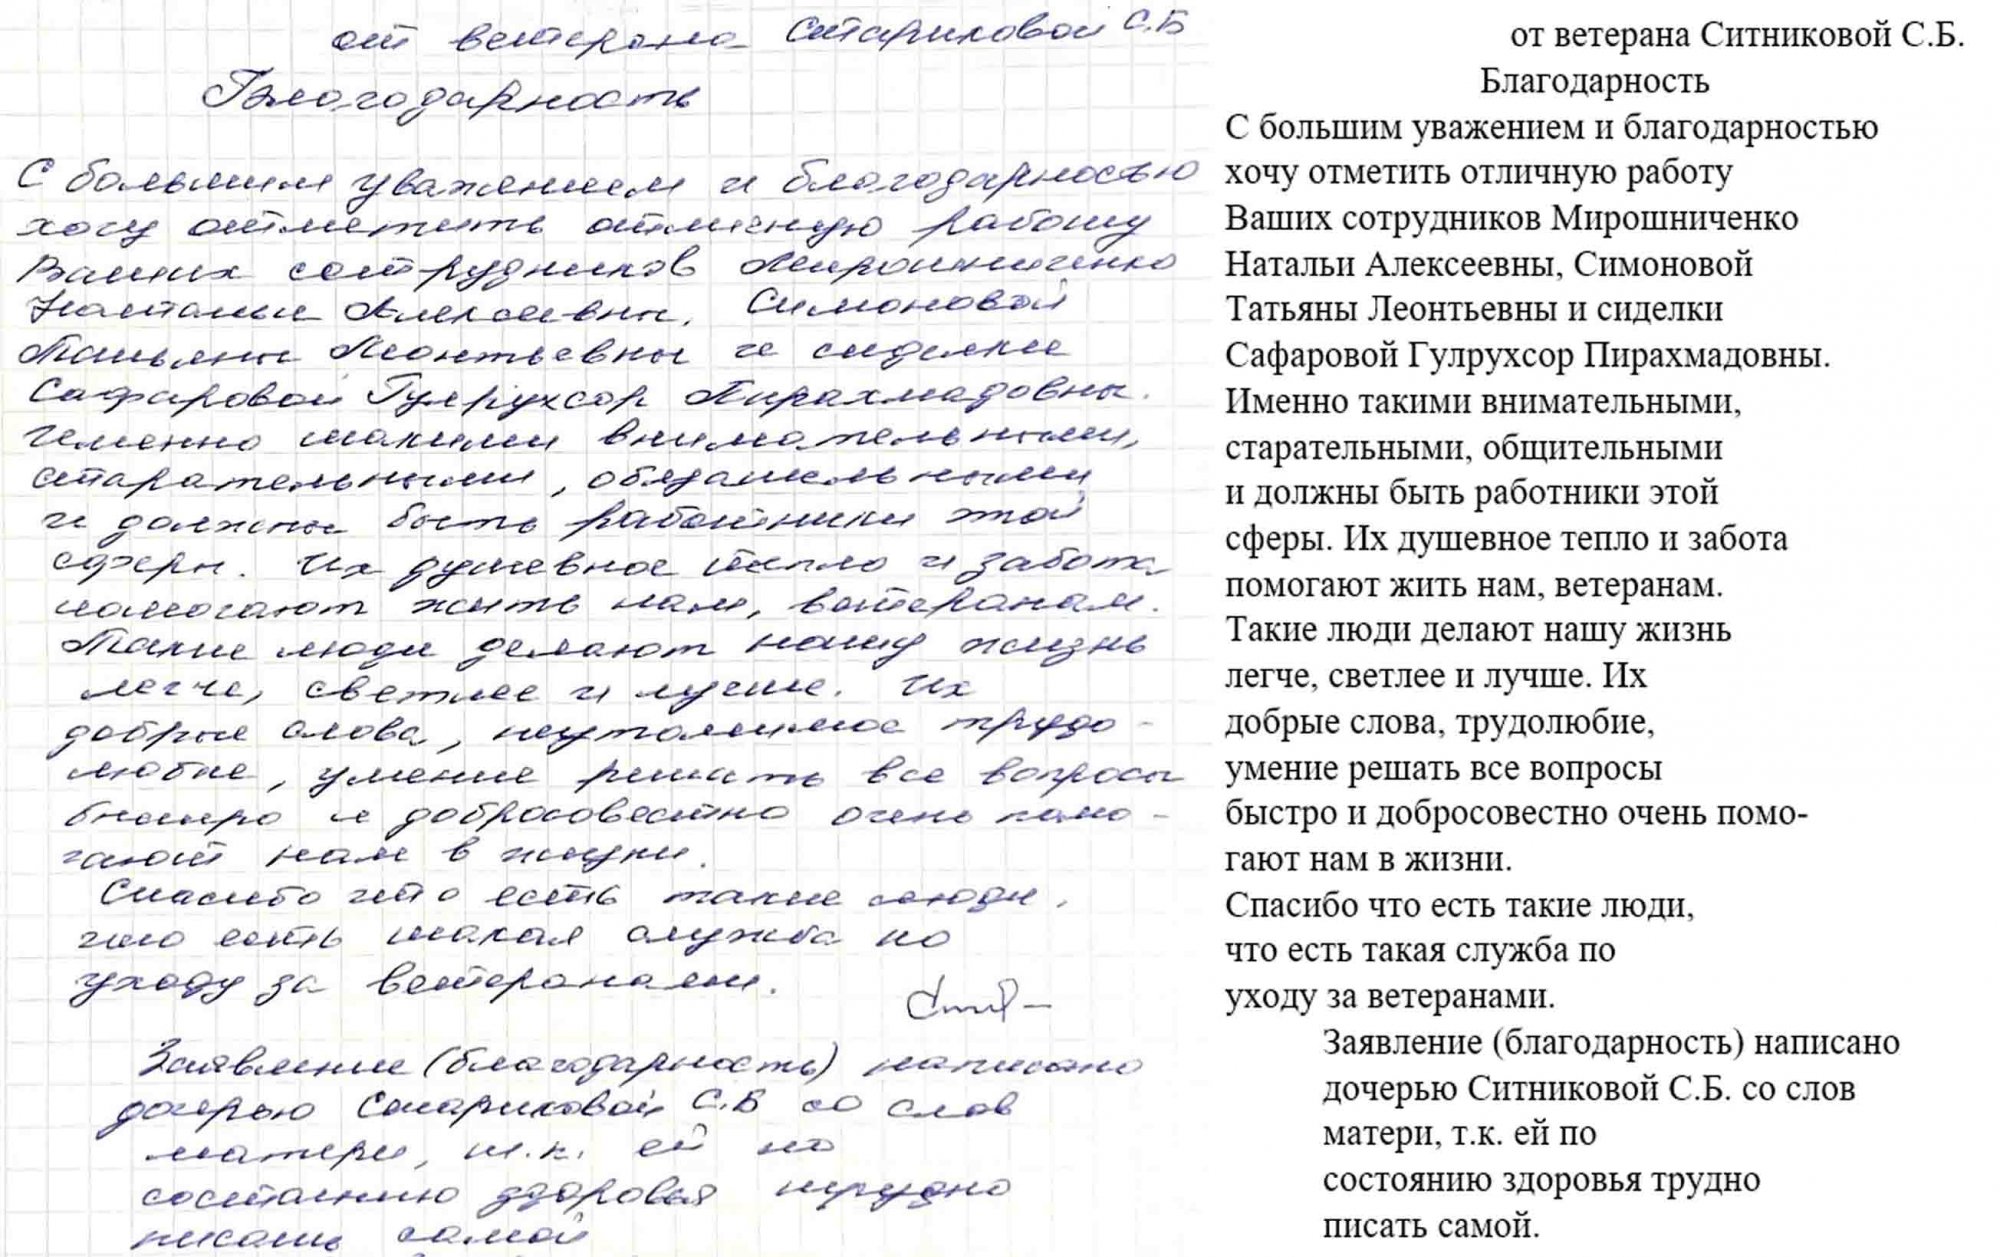 от ветерана Стариковой С.Б
Благодарность
С большим уважением и благодарностью
хочу отметить отличную работу
Ваших сотрудников Мирошниченко
Натальи Алексеевны, Симоновой
Татьяны Леонтьевны и сиделки
Сафаровой Гулрухсор Пирахмадовны.
Именно такими внимательными,
старательными, обязательными
и должны быть работники этой
сферы. Их душевное тепло и забота
помогают жить нам, ветеранам.
Такие люди делают нашу жизнь
легче, светлее и лучше. Их
добрые слова, неутомимое трудо-
любие, умение решать все вопросы
быстро и добросовестно очень помо-
гают нам в жизни.
Спасибо что есть такие люди,
что есть такая служба по
уходу за ветеранами.
Заявление (благодарность) написано
дочерью Стариковой С.Б со слов
матери, т.к. ей по
состоянию здоровья трудно
писать самой
от ветерана Ситниковой С.Б.
Благодарность
С большим уважением и благодарностью
хочу отметить отличную работу
Ваших сотрудников Мирошниченко
Натальи Алексеевны, Симоновой
Татьяны Леонтьевны и сиделки
Сафаровой Гулрухсор Пирахмадовны.
Именно такими внимательными,
старательными, общительными
и должны быть работники этой
сферы. Их душевное тепло и забота
помогают жить нам, ветеранам.
Такие люди делают нашу жизнь
легче, светлее и лучше. Их
добрые слова, трудолюбие,
умение решать все вопросы
быстро и добросовестно очень помо-
гают нам в жизни.
Спасибо что есть такие люди,
что есть такая служба по
уходу за ветеранами.
Заявление (благодарность) написано
дочерью Ситниковой С.Б. со слов
матери, т.к. ей по
состоянию здоровья трудно
писать самой.